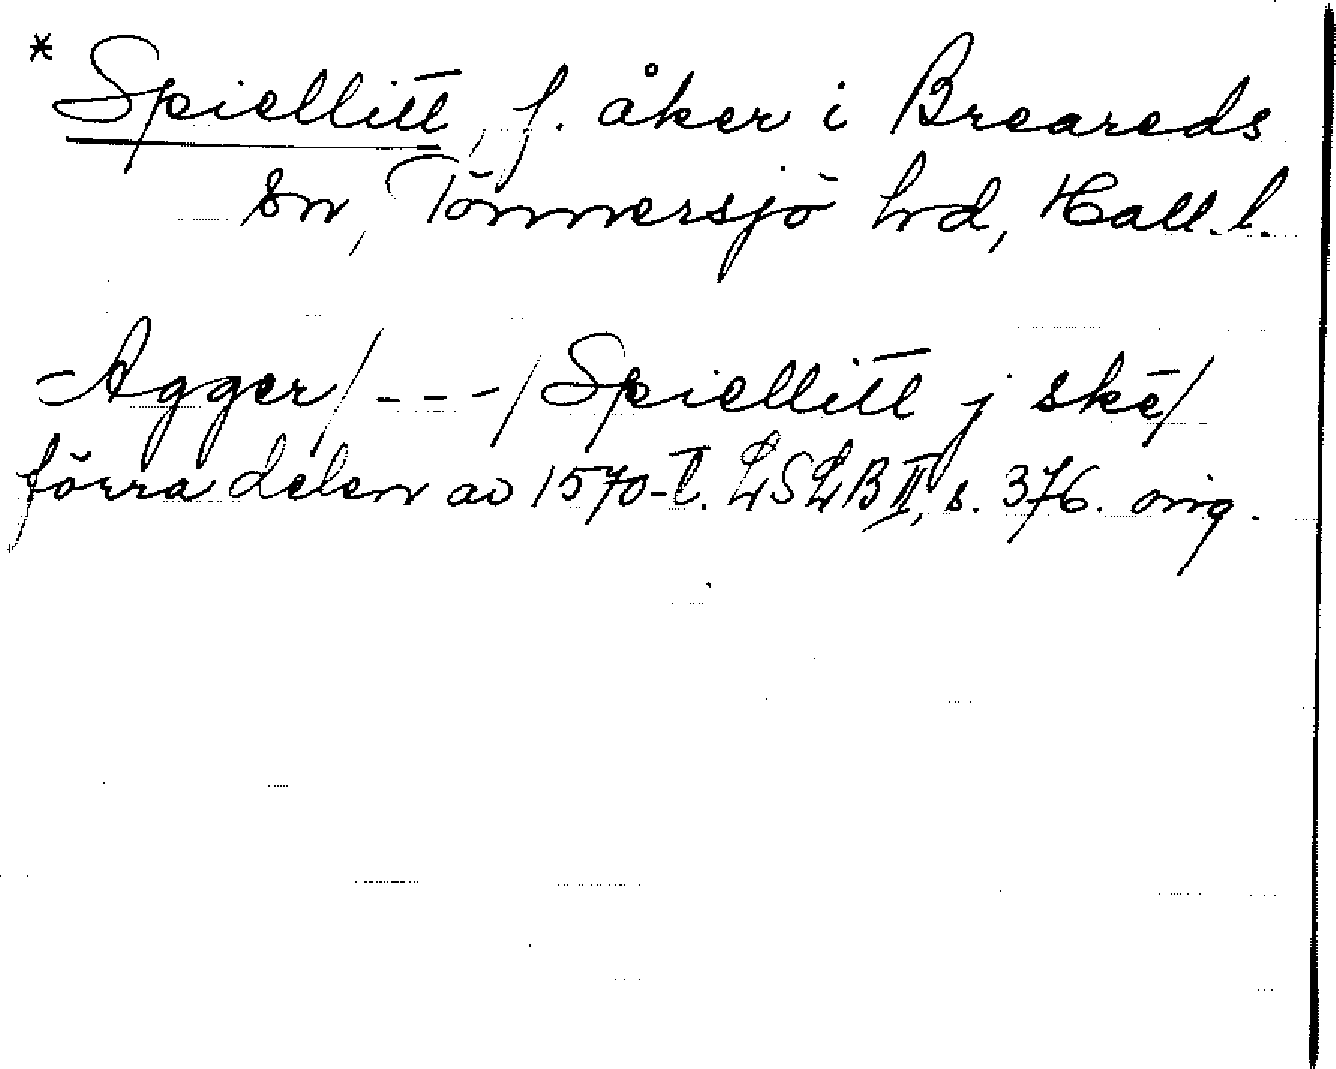 * Spiellitt, f. åker i Breareds
sn, Tönnersjö hd, Hall. l.
- Agger / - - - / Spiellitt j skē /
förra delen av 1570-t. LSLB II, s. 376. orig.